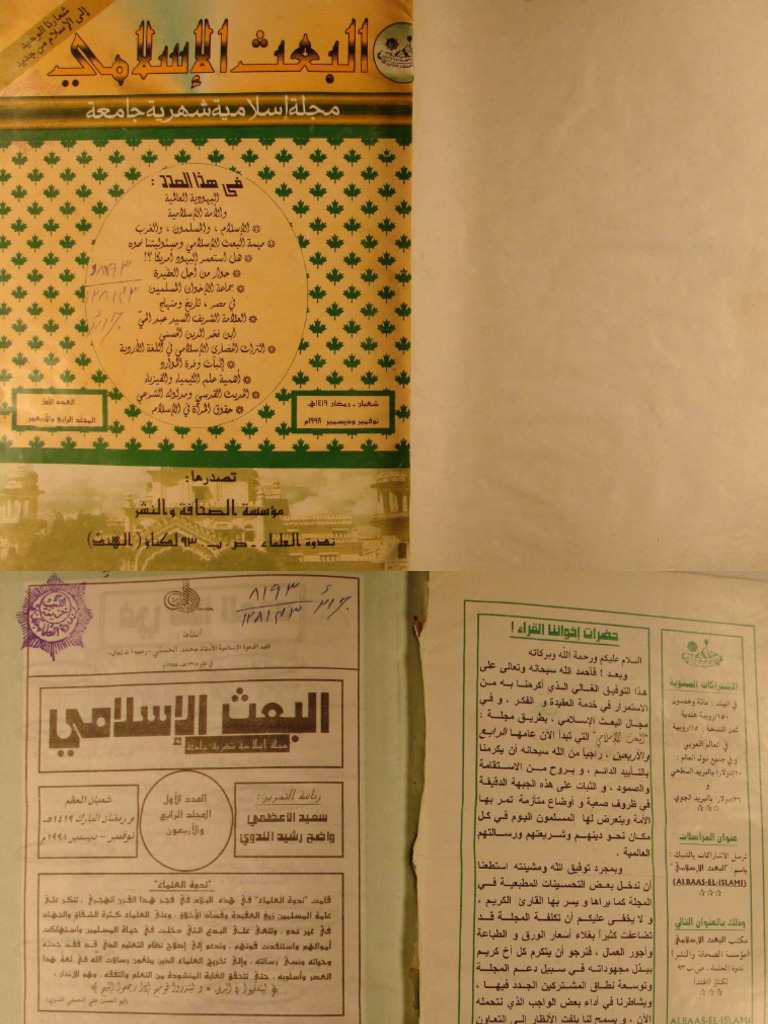 شعارنا الوحيد
إلى الإسلام من جديد
البعث الإسلامي
مجلة إسلامية شهرية جامعة
في هذا العدد :
اليهودية العالمية
والأمة الإسلامية
الإسلام ، والمسلمون ، والغرب
مهمة البعث الإسلامي ومسئوليتنا نحوه
هل استعمر اليهود أمريكا ؟!
حوار من أجل العقيدة
جماعة الإخوان المسلمين
في مصر ، تاريخ ومنهاج
العلامة الشريف السيد عبد الحيّ
ابن فخر الدين الحسني
التراث الحضاري الإسلامي في اللغة الأردية
إثبات وفرة الموارد
أهمية علم الكيمياء والفيزياء
الحديث القدسي ومدلوله الشرعي
حقوق المرأة في الإسلام
شعبان - رمضان ١٤١٩هـ
نوفمبر وديسمبر ١٩٩٨م
العدد الأول
المجلد الرابع والأربعون
تصدرها :
مؤسسة الصحافة والنشر
ندوة العلماء - ص . ب . ٩٣ لكناؤ ( الهند )
٨١٩٣
أنشأها :
فقيد الدعوة الإسلامية الأستاذ محمد الحسني - رحمه الله تعالى -
في عام ١٣٧٥هـ - ١٩٥٥م
البعث الإسلامي
مجلة إسلامية شهرية جامعة
رئاسة التحرير :
سعيد الأعظمي
واضح رشيد الندوي
العدد الأول
المجلد الرابع
والأربعون
شعبان المعظم
و رمضان المبارك ١٤١٩هـ
نوفمبر - ديسمبر ١٩٩٨م
"ندوة العلماء"
قامت "ندوة العلماء" في هذه البلاد في فجر هذا القرن الهجري . تنكر على
علماء المسلمين زيغ العقيدة وفساد الأخلاق . وعلى العلماء كثرة الشقاق والجهاد
في غير عدو . وتنعى على البدع التي دخلت في حياة المسلمين واستهلكت
أموالهم واستنفدت قوتهم . وتدعو إلى إصلاح نظام التعليم الذي قد فقد جدته
وحياته ونسى رسالته . وإلى تخريج العلماء الذين يبلغون رسالات الله في لغة هذا
العصر وأسلوبه . حتى تتحقق الغاية المنشودة من التعلم والتفقه . وهو الإنذار .
﴿ ليتفقهوا في الدين ، و لينذروا قومهم إذا رجعوا إليهم ﴾
(أبو الحسن علي الحسني الندوي)
حضرات إخواننا القراء !
السلام عليكم ورحمة الله وبركاته
وبعد ! فأحمد الله سبحانه وتعالى على
هذا التوفيق الغالي الذي أكرمنا به من
الاستمرار في خدمة العقيدة و الفكر ، و في
مجال البعث الإسلامي ، بطريق مجلة :
"البعث الإسلامي" التي تبدأ الآن عامها الرابع
والأربعين ، راجياً من الله سبحانه أن يكرمنا
بالتأييد الدائم ، و بروح من الاستقامة
والصمود ، و الثبات على هذه الجبهة الدقيقة
في ظروف صعبة و أوضاع متأزمة تمر بها
الأمة ويتعرض لها المسلمون اليوم في كل
مكان نحو دينهم وشريعتهم ورسالتهم
العالمية .
وبمجرد توفيق الله ومشيئته استطعنا
أن ندخل بعض التحسينات المطبعية في
المجلة كما يراها و يسر بها القارئ الكريم ،
و لا يخفى عليكم أن تكلفة المجلة قد
تضاعفت كثيراً بغلاء أسعار الورق و الطباعة
وأجور العمال ، فنرجو أن يتكرم كل أخ كريم
ببذل مجهوداته في سبيل دعم المجلة
وتوسعة نطاق المشتركين الجدد فيها ،
ويشاطرنا في أداء بعض الواجب الذي نتحمله
الآن ، و يسمح لنا بلفت الأنظار إلى التعاون
الاشتراكات السنوية
في الهند : مائة وخمسون
١٥٠/روبية هندية
ثمن النسخة : ١٥/روبية
في العالم العربي
و في جميع دول العالم :
٢٠/دولارا بالبريد السطحي
و
٣٦/دولاراً بالبريد الجوي
عنوان المراسلات
ترسل الاشتراكات بالشيك :
باسم "البعث الإسلامي"
(ALBAAS-EL-ISLAMI)
وذلك بالعنوان التالي
مكتب البعث الإسلامي
(مؤسسة الصحافة والنشر)
ندوة العلماء . ص ب ٩٣
لكناؤ (الهند)
ALBAAS-EL-ISLAMI